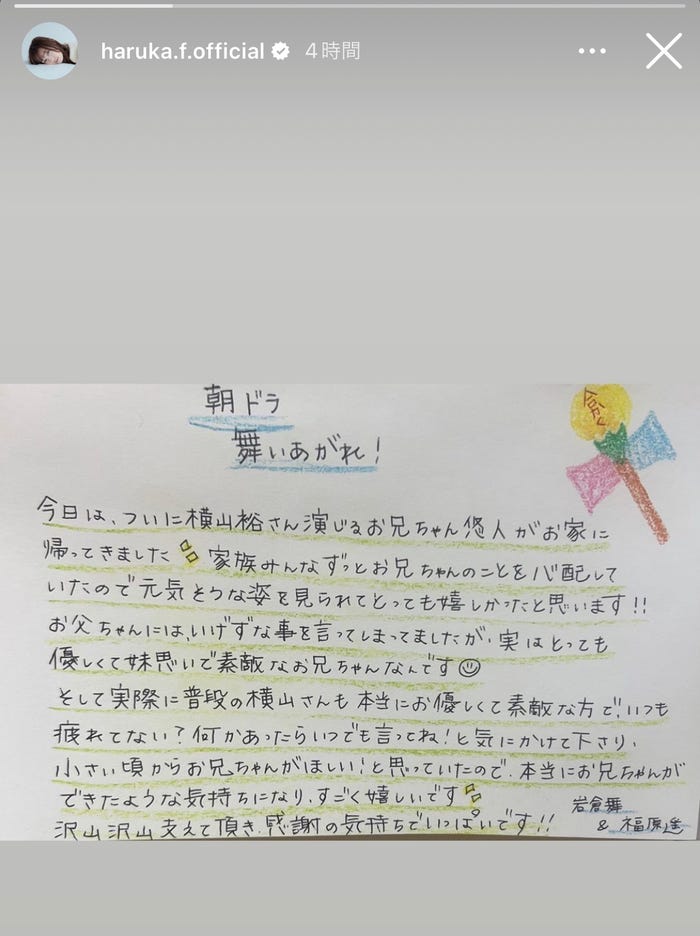 haruka.f.official 4時間
朝ドラ
舞いあがれ!
今日は、ついに横山裕さん演じるお兄ちゃん悠人がお家に
帰ってきました 家族みんなずっとお兄ちゃんのことを心配して
いたので元気そうな姿を見られてとっても嬉しかったと思います!!
お父ちゃんには、いけずな事を言ってしまってましたが、実はとっても
優しくて妹思いで素敵なお兄ちゃんなんです☺
そして実際に普段の横山さんも本当にお優しくて素敵な方で!いつも
疲れてない?何かあったらいつでも言ってね!と気にかけて下さり、
小さい頃からお兄ちゃんがほしい!と思っていたので、本当にお兄ちゃんが
できたような気持ちになり、すごく嬉しいです
沢山沢山支えて頂き、感謝の気持ちでいっぱいです!!
岩倉舞
& 福原遥